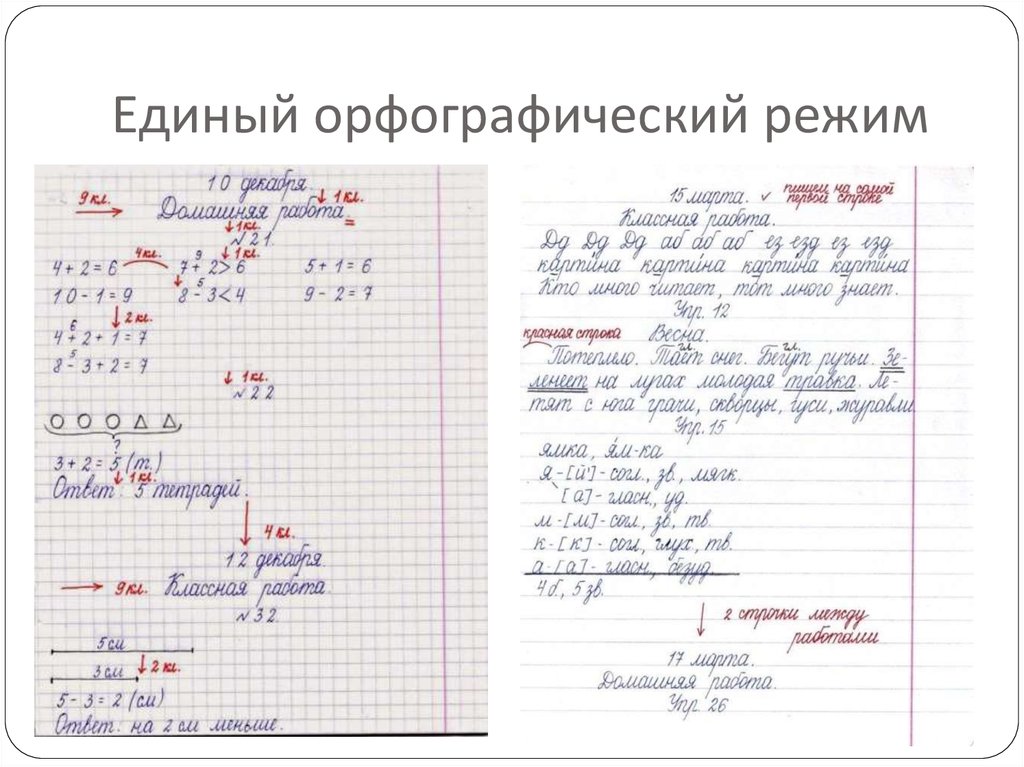 Единый орфографический режим
10 декабря.
9 кл. Домашняя работа. ↓ 1 кл.
↓ 1 кл.
№ 21.
4 кл. 9 ↓ 1 кл.
4 + 2 = 6 7 + 2 > 6 5 + 1 = 6
5
10 - 1 = 9 8 - 3 < 4 9 - 2 = 7
↓ 2 кл.
6
4 + 2 + 1 = 7
5
8 - 3 + 2 = 7
↓ 1 кл.
№ 22
?
3 + 2 = 5 (т.)
↓ 1 кл.
Ответ: 5 тетрадей.
4 кл.
12 декабря.
9 кл. Классная работа.
№ 32.
5 см
3 см ↓ 2 кл.
5 - 3 = 2 (см)
Ответ: на 2 см меньше.
15 марта. ✓ пишем на самой
первой строке
Классная работа.
Дд Дд Дд аб аб аб ез езд ез езд
карти́на карти́на карти́на карти́на
Кто много читает, тот много знает.
Упр. 12
красная строка Весна.
гл. гл.
Потеплело. Тает снег. Бегут ручьи. Зе-
ленеет на лугах молодая травка. Ле-
тят с юга грачи, скворцы, гуси, журавли.
Упр. 15
ямка, я́м-ка
я - [й'] - согл., зв., мягк.
[а] - гласн., уд.
м - [м] - согл., зв., тв.
к - [к] - согл., глух., тв.
а - [а] - гласн., безуд.
4 б., 5 зв.
2 строчки между
работами
17 марта.
Домашняя работа.
Упр. 26